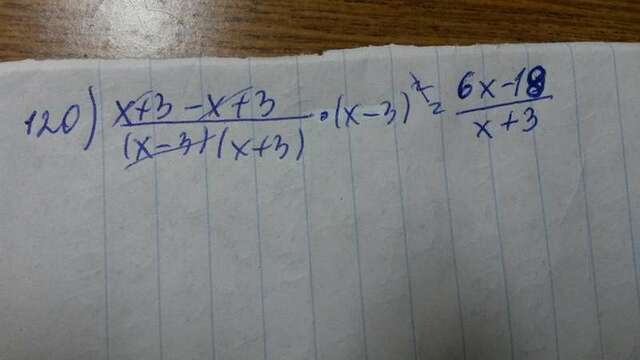 120) (x+3-x+3)/((x-3)(x+3)) · (x-3)² = (6x-18)/(x+3)